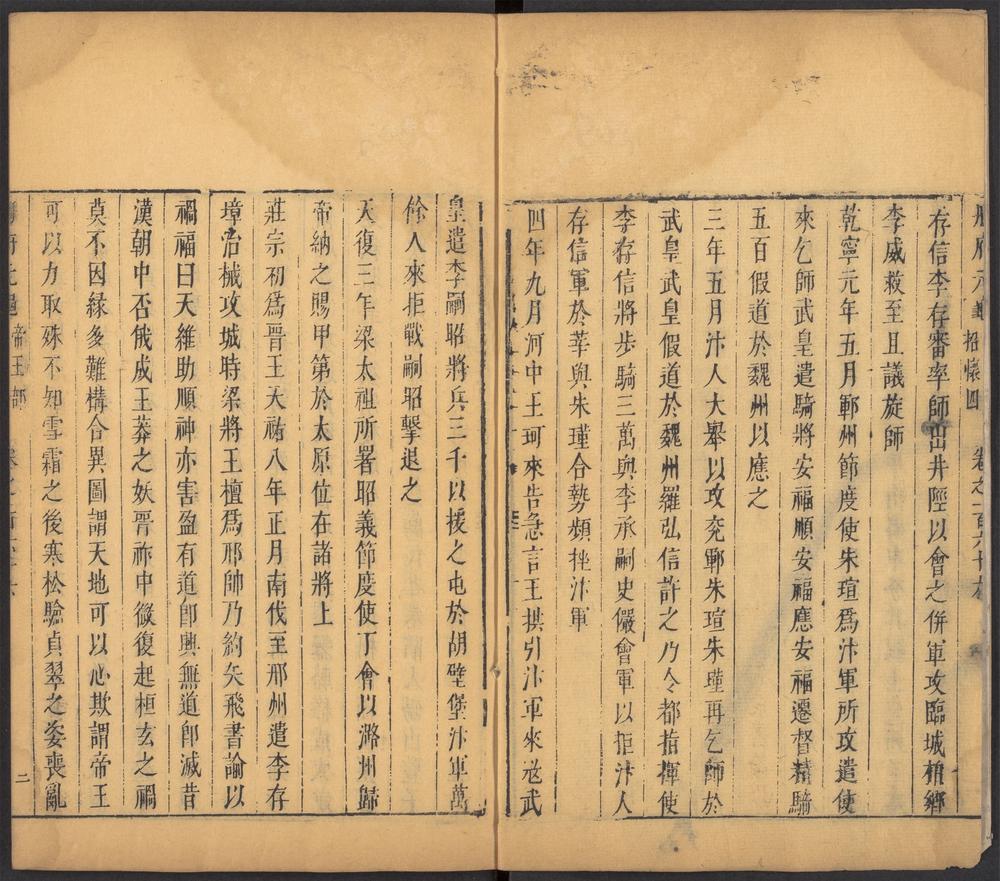 册府元龜 招懷四 卷之一百六十六
存信李存審率師出井陘以會之併軍攻臨城柏鄉
李威救至且議旋師
乾寧元年五月鄆州節度使朱瑄爲汴軍所攻遣使
來乞師武皇遣騎將安福順安福應安福遷督精騎
五百假道於魏州以應之
三年五月汴人大舉以攻兖鄆朱瑄朱瑾再乞師於
武皇武皇假道於魏州羅弘信許之乃令都指揮使
李存信將步騎三萬與李承嗣史儼會軍以拒汴人
存信軍於莘與朱瑾合勢頻挫汴軍
四年九月河中王珂來告急言王珙引汴軍來寇武
皇遣李嗣昭將兵三千以援之屯於胡壁堡汴軍萬
餘人來拒戰嗣昭擊退之
天復三年梁太祖所署昭義節度使丁會以潞州歸
帝納之賜甲第於太原位在諸將上
莊宗初爲晉王天祐八年正月南伐至邢州遣李存
璋治械攻城時梁將王檀爲邢帥乃約矢飛書諭以
禍福曰天維助順神亦害盈有道卽興無道卽滅昔
漢朝中否俄成王莽之妖晉祚中微復起桓玄之禍
莫不因緣多難構合異圖謂天地可以心欺謂帝王
可以力取殊不知雪霜之後寒松驗貞翠之姿喪亂
帝王部
二